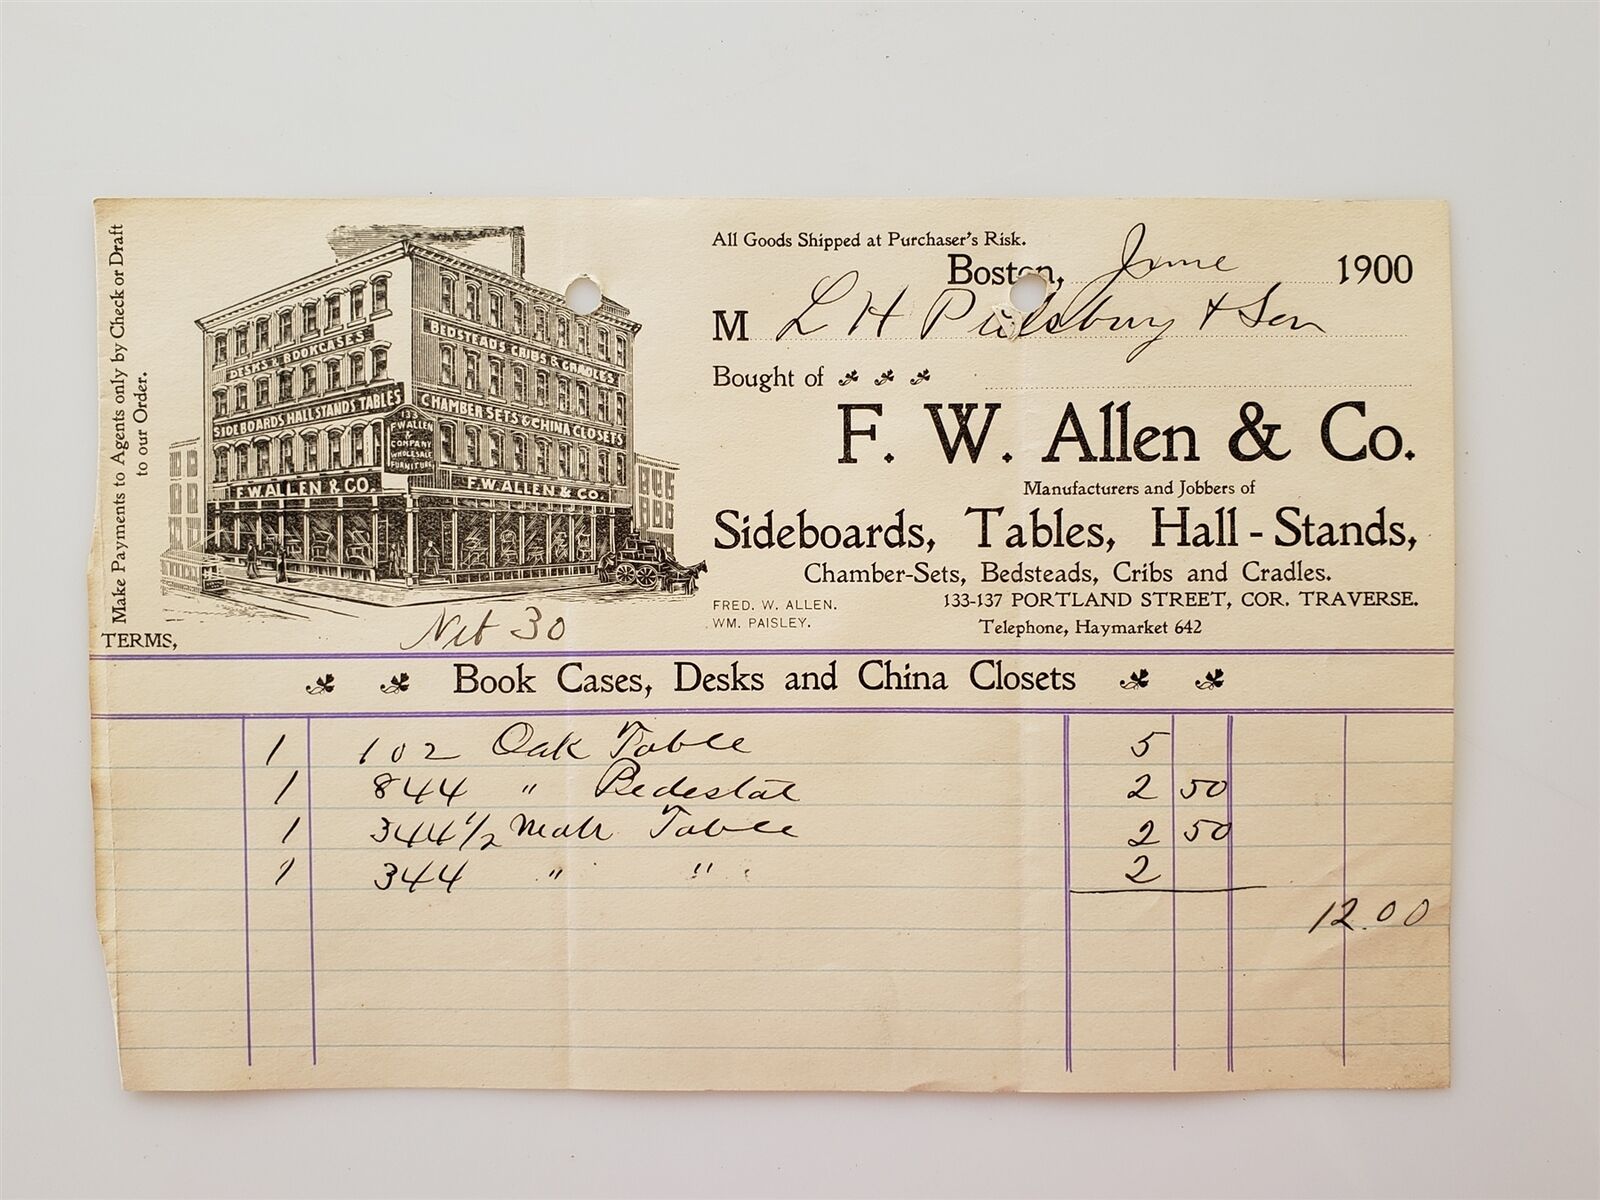 Make Payments to Agents only by Check or Draft
to our Order.
DESKS & BOOKCASES
BEDSTEADS CRIBS & CRADLES
SIDEBOARDS HALL STANDS TABLES
CHAMBER SETS & CHINA CLOSETS
133
F.W ALLEN
&
COMPANY
WHOLESALE
FURNITURE
F.W. ALLEN & CO.
F.W. ALLEN & CO.
All Goods Shipped at Purchaser's Risk.
Boston, June 1900
M L H Pillsbury & Son
Bought of
F. W. Allen & Co.
Manufacturers and Jobbers of
Sideboards, Tables, Hall-Stands,
Chamber-Sets, Bedsteads, Cribs and Cradles.
FRED. W. ALLEN.
WM. PAISLEY.
133-137 PORTLAND STREET, COR. TRAVERSE.
Telephone, Haymarket 642
TERMS, Net 30
Book Cases, Desks and China Closets
1 102 Oak Table 5
1 844 " Pedestal 2 50
1 344 1/2 Mah Table 2 50
1 344 " " 2
12.00